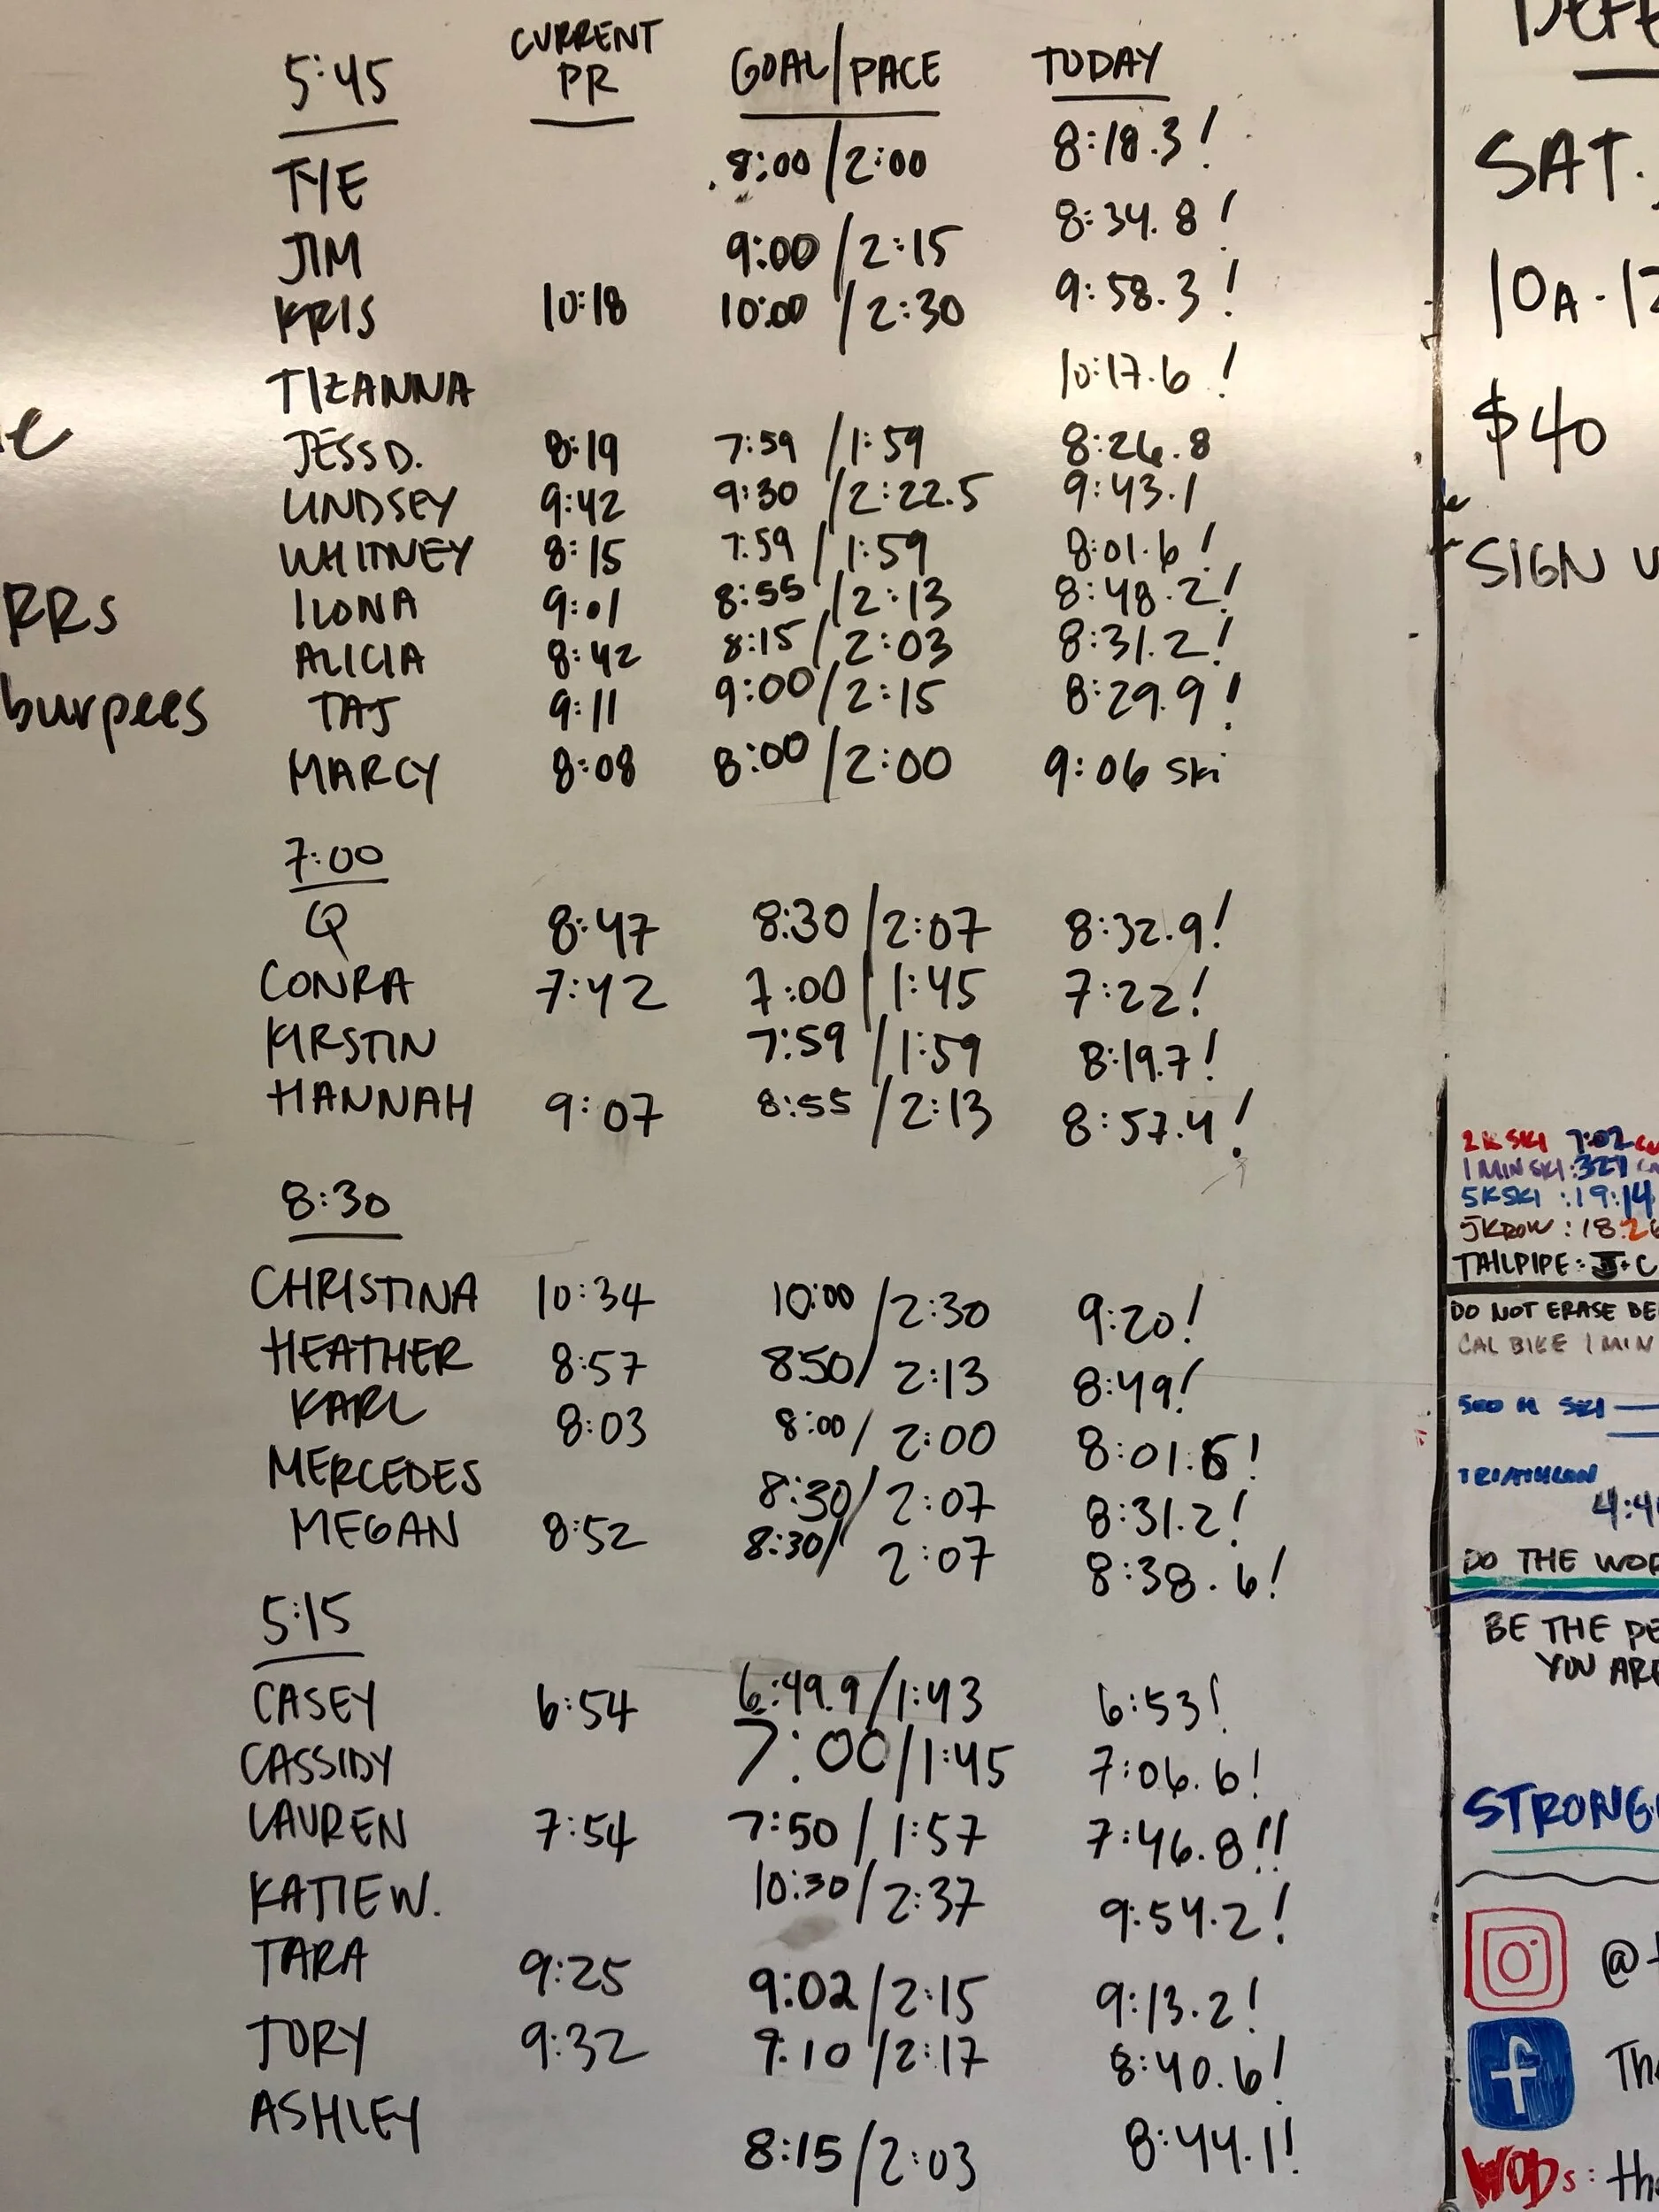 5:45 CURRENT PR GOAL/PACE TODAY
TYE 8:00/2:00 8:18.3!
JIM 9:00/2:15 8:34.8!
KRIS 10:18 10:00/2:30 9:58.3!
TIZANNA 10:17.6!
JESS D. 8:19 7:59/1:59 8:26.8
LINDSEY 9:42 9:30/2:22.5 9:43.1
WHITNEY 8:15 7:59/1:59 8:01.6!
ILONA 9:01 8:55/2:13 8:48.2!
ALICIA 8:42 8:15/2:03 8:31.2!
TAJ 9:11 9:00/2:15 8:29.9!
MARCY 8:08 8:00/2:00 9:06 ski
7:00
Q 8:47 8:30/2:07 8:32.9!
CONRA 7:42 7:00/1:45 7:22!
KIRSTIN 7:59/1:59 8:19.7!
HANNAH 9:07 8:55/2:13 8:57.4!
8:30
CHRISTINA 10:34 10:00/2:30 9:20!
HEATHER 8:57 850/2:13 8:49!
KARL 8:03 8:00/2:00 8:01.6!
MERCEDES 8:30/2:07 8:31.2!
MEGAN 8:52 8:30/2:07 8:38.6!
5:15
CASEY 6:54 6:49.9/1:43 6:53!
CASSIDY 7:00/1:45 7:06.6!
LAUREN 7:54 7:50/1:57 7:46.8!!
KATIE W. 10:30/2:37 9:54.2!
TARA 9:25 9:02/2:15 9:13.2!
TORY 9:32 9:10/2:17 8:40.6!
ASHLEY 8:15/2:03 8:44.1!
RRs
burpees
SAT.
10A-12
$40
SIGN U
2K SKI 7:02
1 MIN SKI: 327
5K SKI: 19:14
5K ROW: 18:26
TAILPIPE: J+C
DO NOT ERASE BE
CAL BIKE 1 MIN
500 M SKI
TRIATHLON
4:4
DO THE WOR
BE THE PE
YOU ARE
STRONG
@t
The
WODs: th